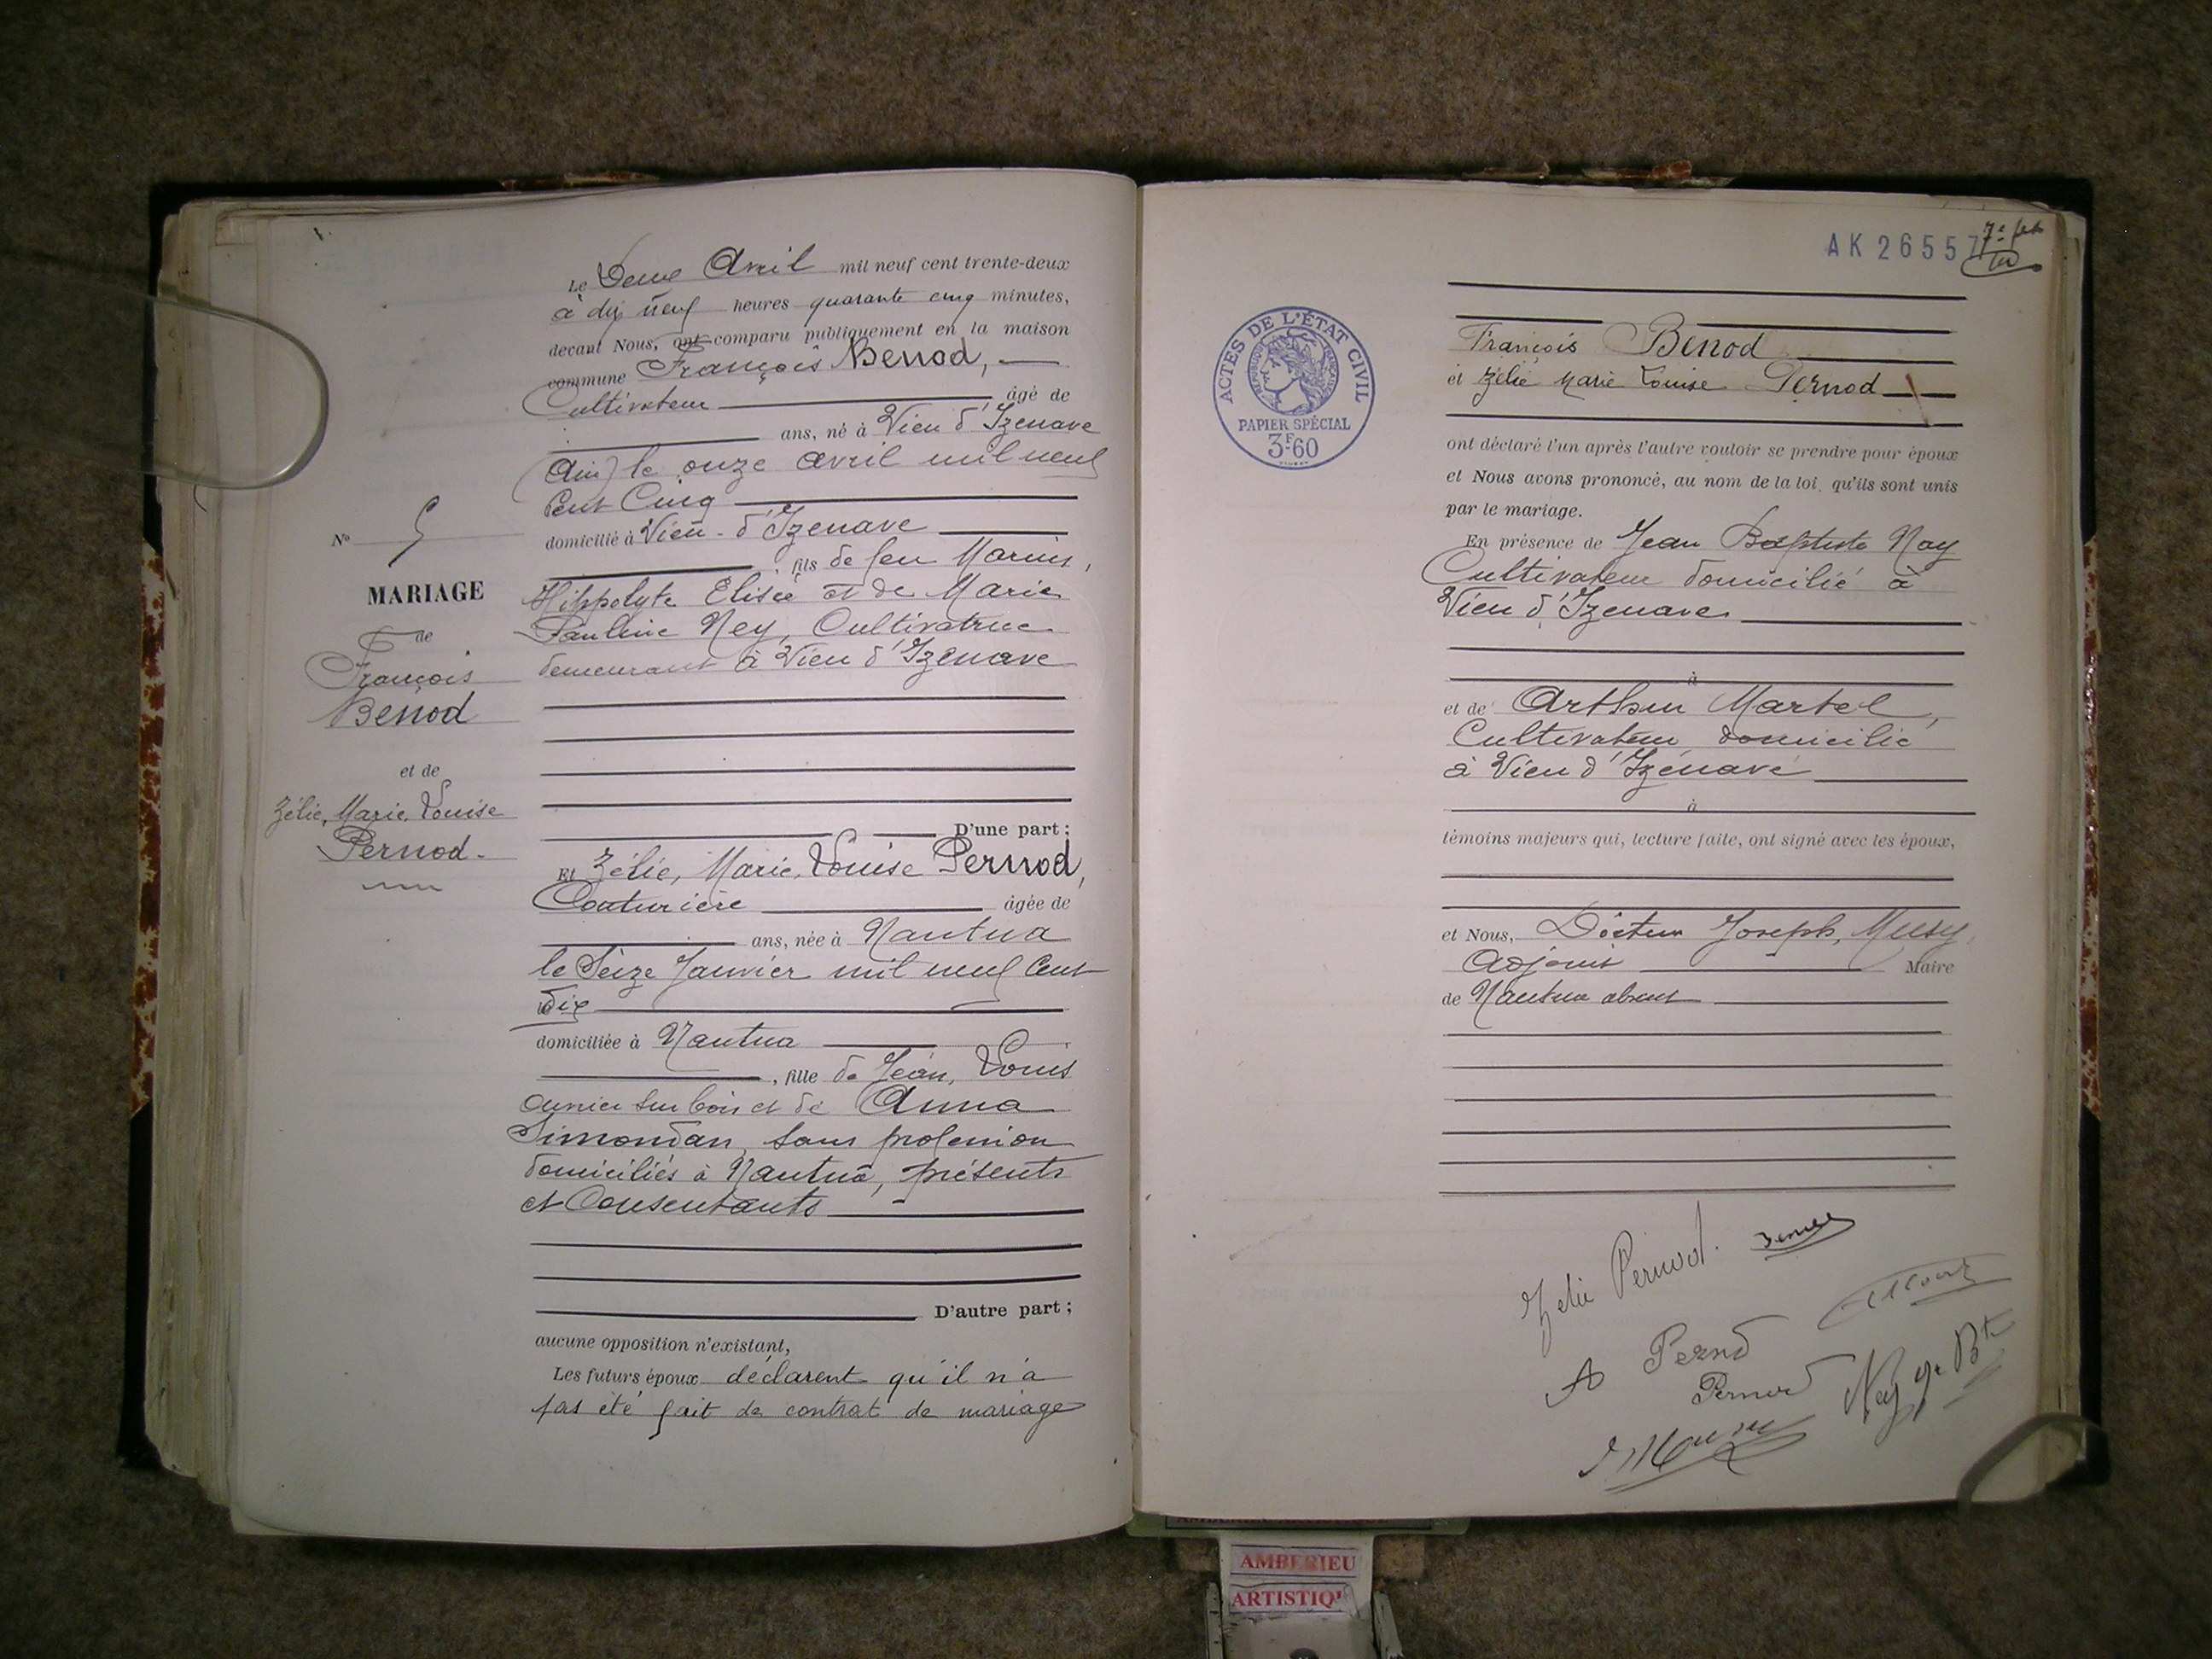 Le Deux Avril mil neuf cent trente-deux
à dix neuf heures quarante cinq minutes,
devant Nous, ont comparu publiquement en la maison
commune François Benod,
Cultivateur âgé de
ans, né à Vieu d'Izenave
(Ain) le onze avril mil neuf
Cent Cinq
domicilié à Vieu-d'Izenave
fils de feu Marius,
Hippolyte Elisée et de Marie
Pauline Ney, Cultivatrice
demeurant à Vieu d'Izenave
D'une part;
Et Zélie, Marie, Louise Pernod,
Couturière âgée de
ans, née à Nantua
le Seize Janvier mil neuf Cent
dix
domiciliée à Nantua
, fille de Jean, Louis
ouvrier sur bois et de Anna
Simondan, sans profession
domiciliés à Nantua, présents
et Consentants
D'autre part;
aucune opposition n'existant,
Les futurs époux déclarent qu'il n'a
pas été fait de contrat de mariage
No 5
MARIAGE
de
François
Benod
et de
Zélie, Marie, Louise
Pernod.
AK 26557
ACTES DE L'ÉTAT CIVIL
RÉPUBLIQUE FRANÇAISE
PAPIER SPÉCIAL
3F60
François Benod
et Zélie Marie Louise Pernod
ont déclaré l'un après l'autre vouloir se prendre pour époux
et Nous avons prononcé, au nom de la loi, qu'ils sont unis
par le mariage.
En présence de Jean Baptiste Ney
Cultivateur domicilié à
Vieu d'Izenave
à
et de Arthur Martel,
Cultivateur domicilié
à Vieu d'Izenave
à
témoins majeurs qui, lecture faite, ont signé avec les époux,
et Nous, Docteur Joseph, Musy,
Adjoint Maire
de Nantua absent
Zelie Pernod.
A Pernod
Pernod
Ney J. Bte
AMBERIEU
ARTISTIQ